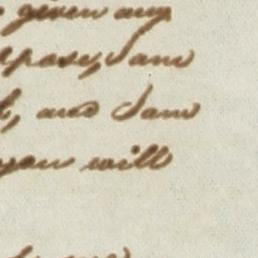 given any
pose, I am
, and I am
you will